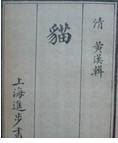 清 黃漢輯
貓
上海進步書